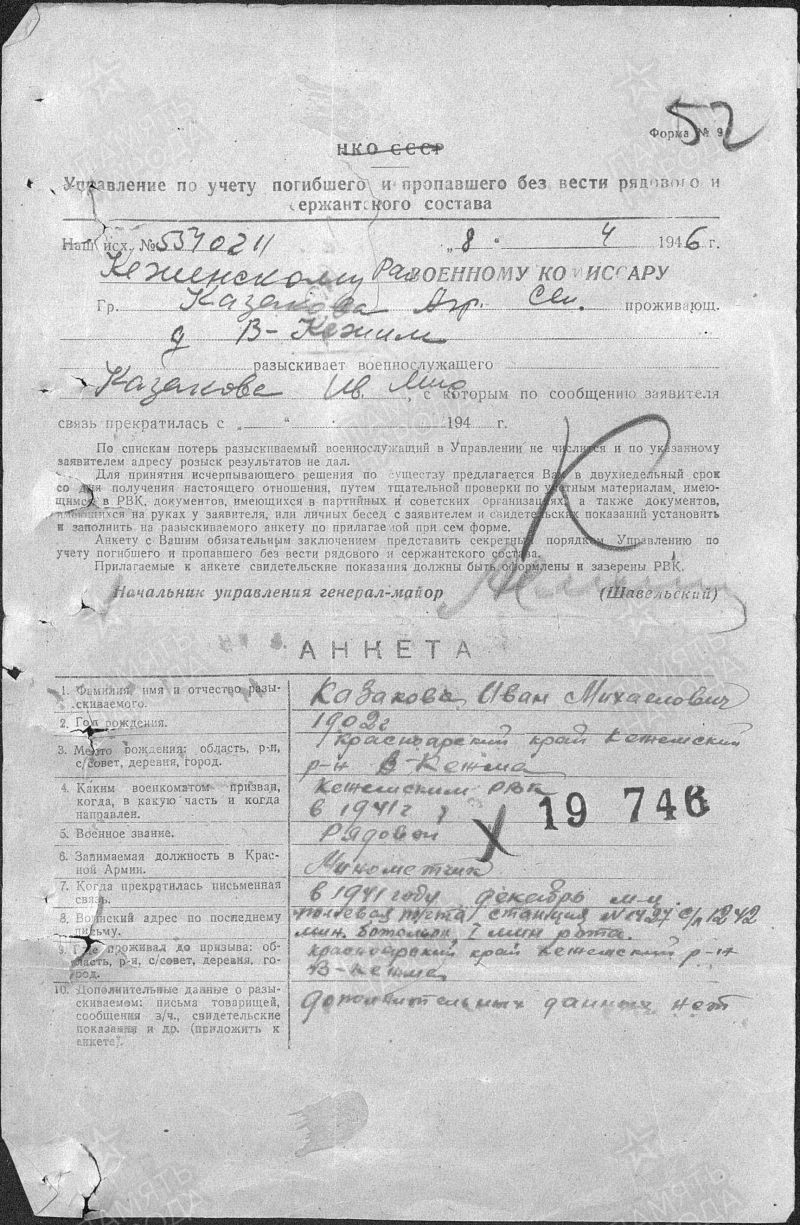 52
Форма № 9
НКО СССР
Управление по учету погибшего и пропавшего без вести рядового и
сержантского состава
Наш исх. № „8“ 4 1946 г.
Кежемскому РайВОЕННОМУ КОМИССАРУ
Гр. Казакова проживающ.
д В-Кежма
разыскивает военнослужащего
Казакова Ив Мих, с которым по сообщению заявителя
связь прекратилась с „ “ 194 г.
По спискам потерь разыскиваемый военнослужащий в Управлении не числится и по указанному
заявителем адресу розыск результатов не дал.
Для принятия исчерпывающего решения по существу предлагается Вам в двухнедельный срок
со дня получения настоящего отношения, путем тщательной проверки по учетным материалам, имею-
щимся в РВК, документов, имеющихся в партийных и советских организациях а также документов,
имеющихся на руках у заявителя, или личных бесед с заявителем и свидетельских показаний установить
и заполнить на разыскиваемого анкету по прилагаемой при сем форме.
Анкету с Вашим обязательным заключением представить секретным порядком Управлению по
учету погибшего и пропавшего без вести рядового и сержантского состава.
Прилагаемые к анкете свидетельские показания должны быть оформлены и заверены РВК.
Начальник управления генерал-майор (Шавельский)
АНКЕТА
1. Фамилия, имя и отчество разы-
скиваемого.
Казакова Иван Михаелович
2. Год рождения.
1902 г
3. Место рождения: область, р-н,
с/совет, деревня, город.
Красноарский край Кежемский
р-н В-Кежма
4. Каким военкоматом призван,
когда, в какую часть и когда
направлен.
Кежемским РВК
в 1941 г
19 746
5. Военное звание.
Рядовой
6. Занимаемая должность в Крас-
ной Армии.
Минометчик
7. Когда прекратилась письменная
связь.
в 1941 году декабрь м-ц.
8. Воинский адрес по последнему
письму.
полевая пучта станция N 1427 с/п 1242
мин. ботольон 1 мин рота.
9. Где проживал до призыва: об-
ласть, р-н, с/совет, деревня, го-
род.
Красноарский край Кежемский р-н
В-Кежма
10. Дополнительные данные о разы-
скиваемом: письма товарищей,
сообщения в/ч., свидетельские
показания и др. (приложить к
анкете).
дополнительных данных нет